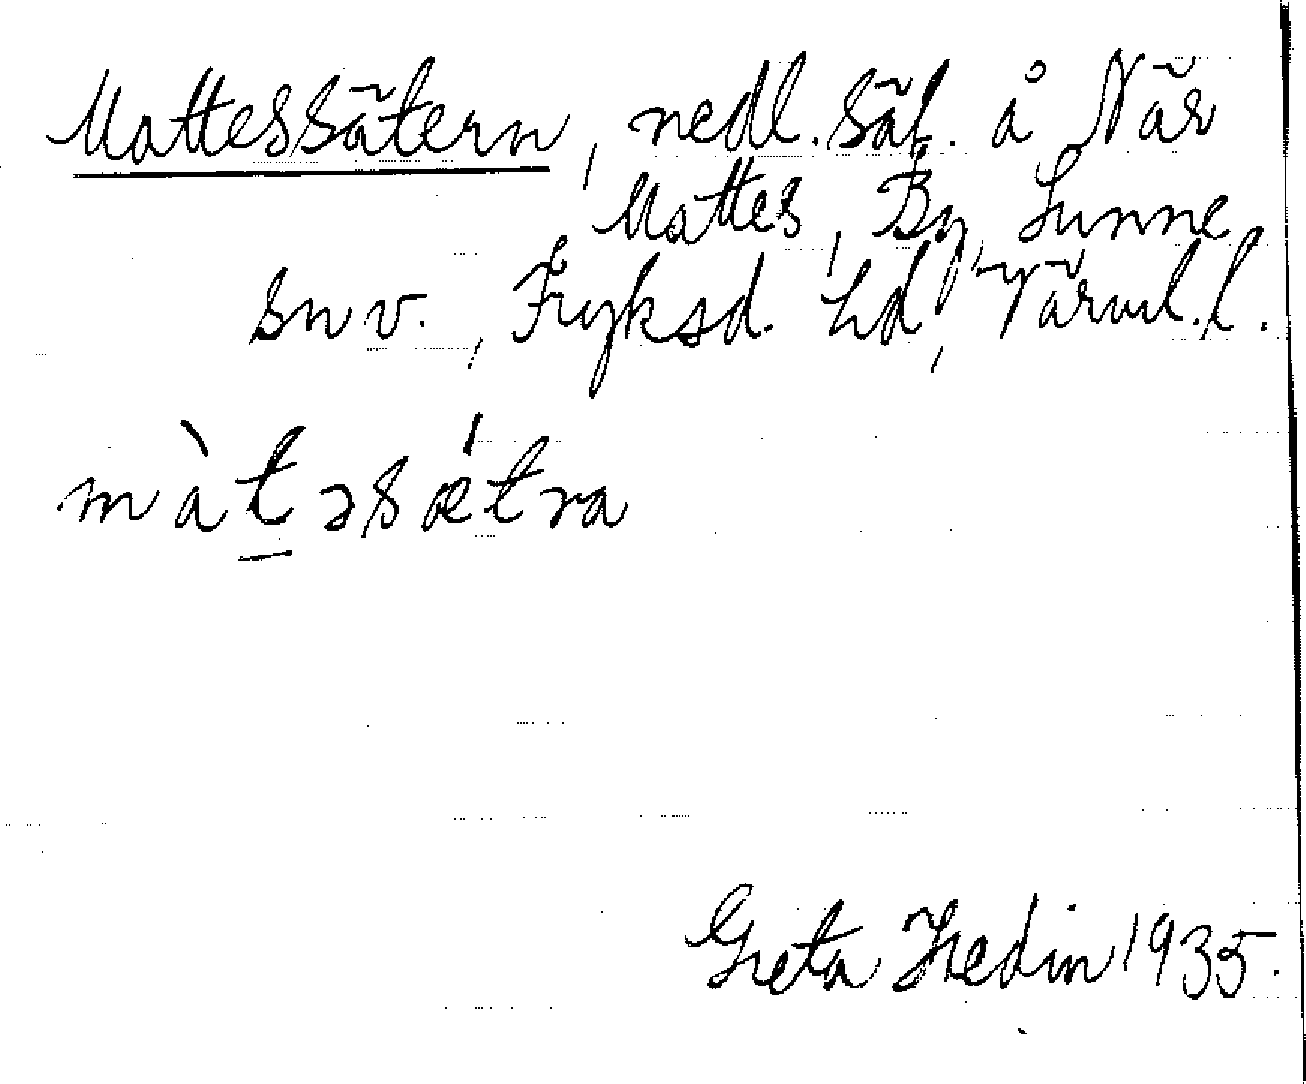 Mattessätern, nedl. sät. å När
Mattes, By, Sunne
sn v., Fryksd. hd, Värml. l.
màt̲əsǽtra
Greta Hedin 1935.